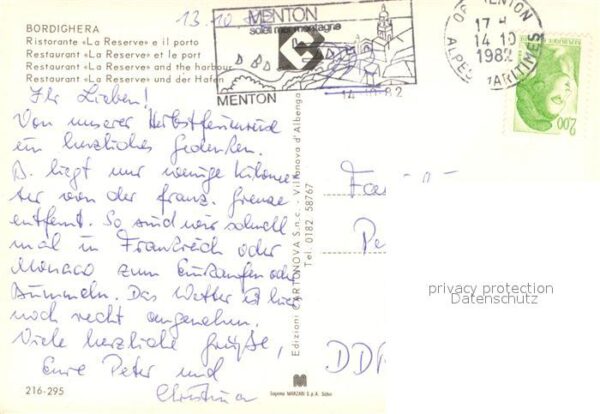 13.10.82
BORDIGHERA
Ristorante «La Reserve» e il porto
Restaurant «La Reserve» et le port
Restaurant «La Reserve» and the harbour
Restaurant «La Reserve» und der Hafen
MENTON
soleil mer montagne
MENTON
14 10 82
MENTON
17 H
14 10
1982
ALPES MARITIMES
2,00
Ihr Lieben!
Von unserer Herbstferienreise
ein herzliches Gedenken.
B. liegt nur wenige Kilome-
ter von der franz. Grenze
entfernt. So sind wir schnell
mal in Frankreich oder
Monaco zum Einkaufen oder
Bummeln. Das Wetter ist hier
noch recht angenehm.
Viele herzliche Grüße,
Eure Peter und
Christina
Edizioni CARTONOVA S.n.c. - Villanova d'Albenga
Tel. 0182 58767
Fa
Pe
DDR
privacy protection
Datenschutz
216-295
M